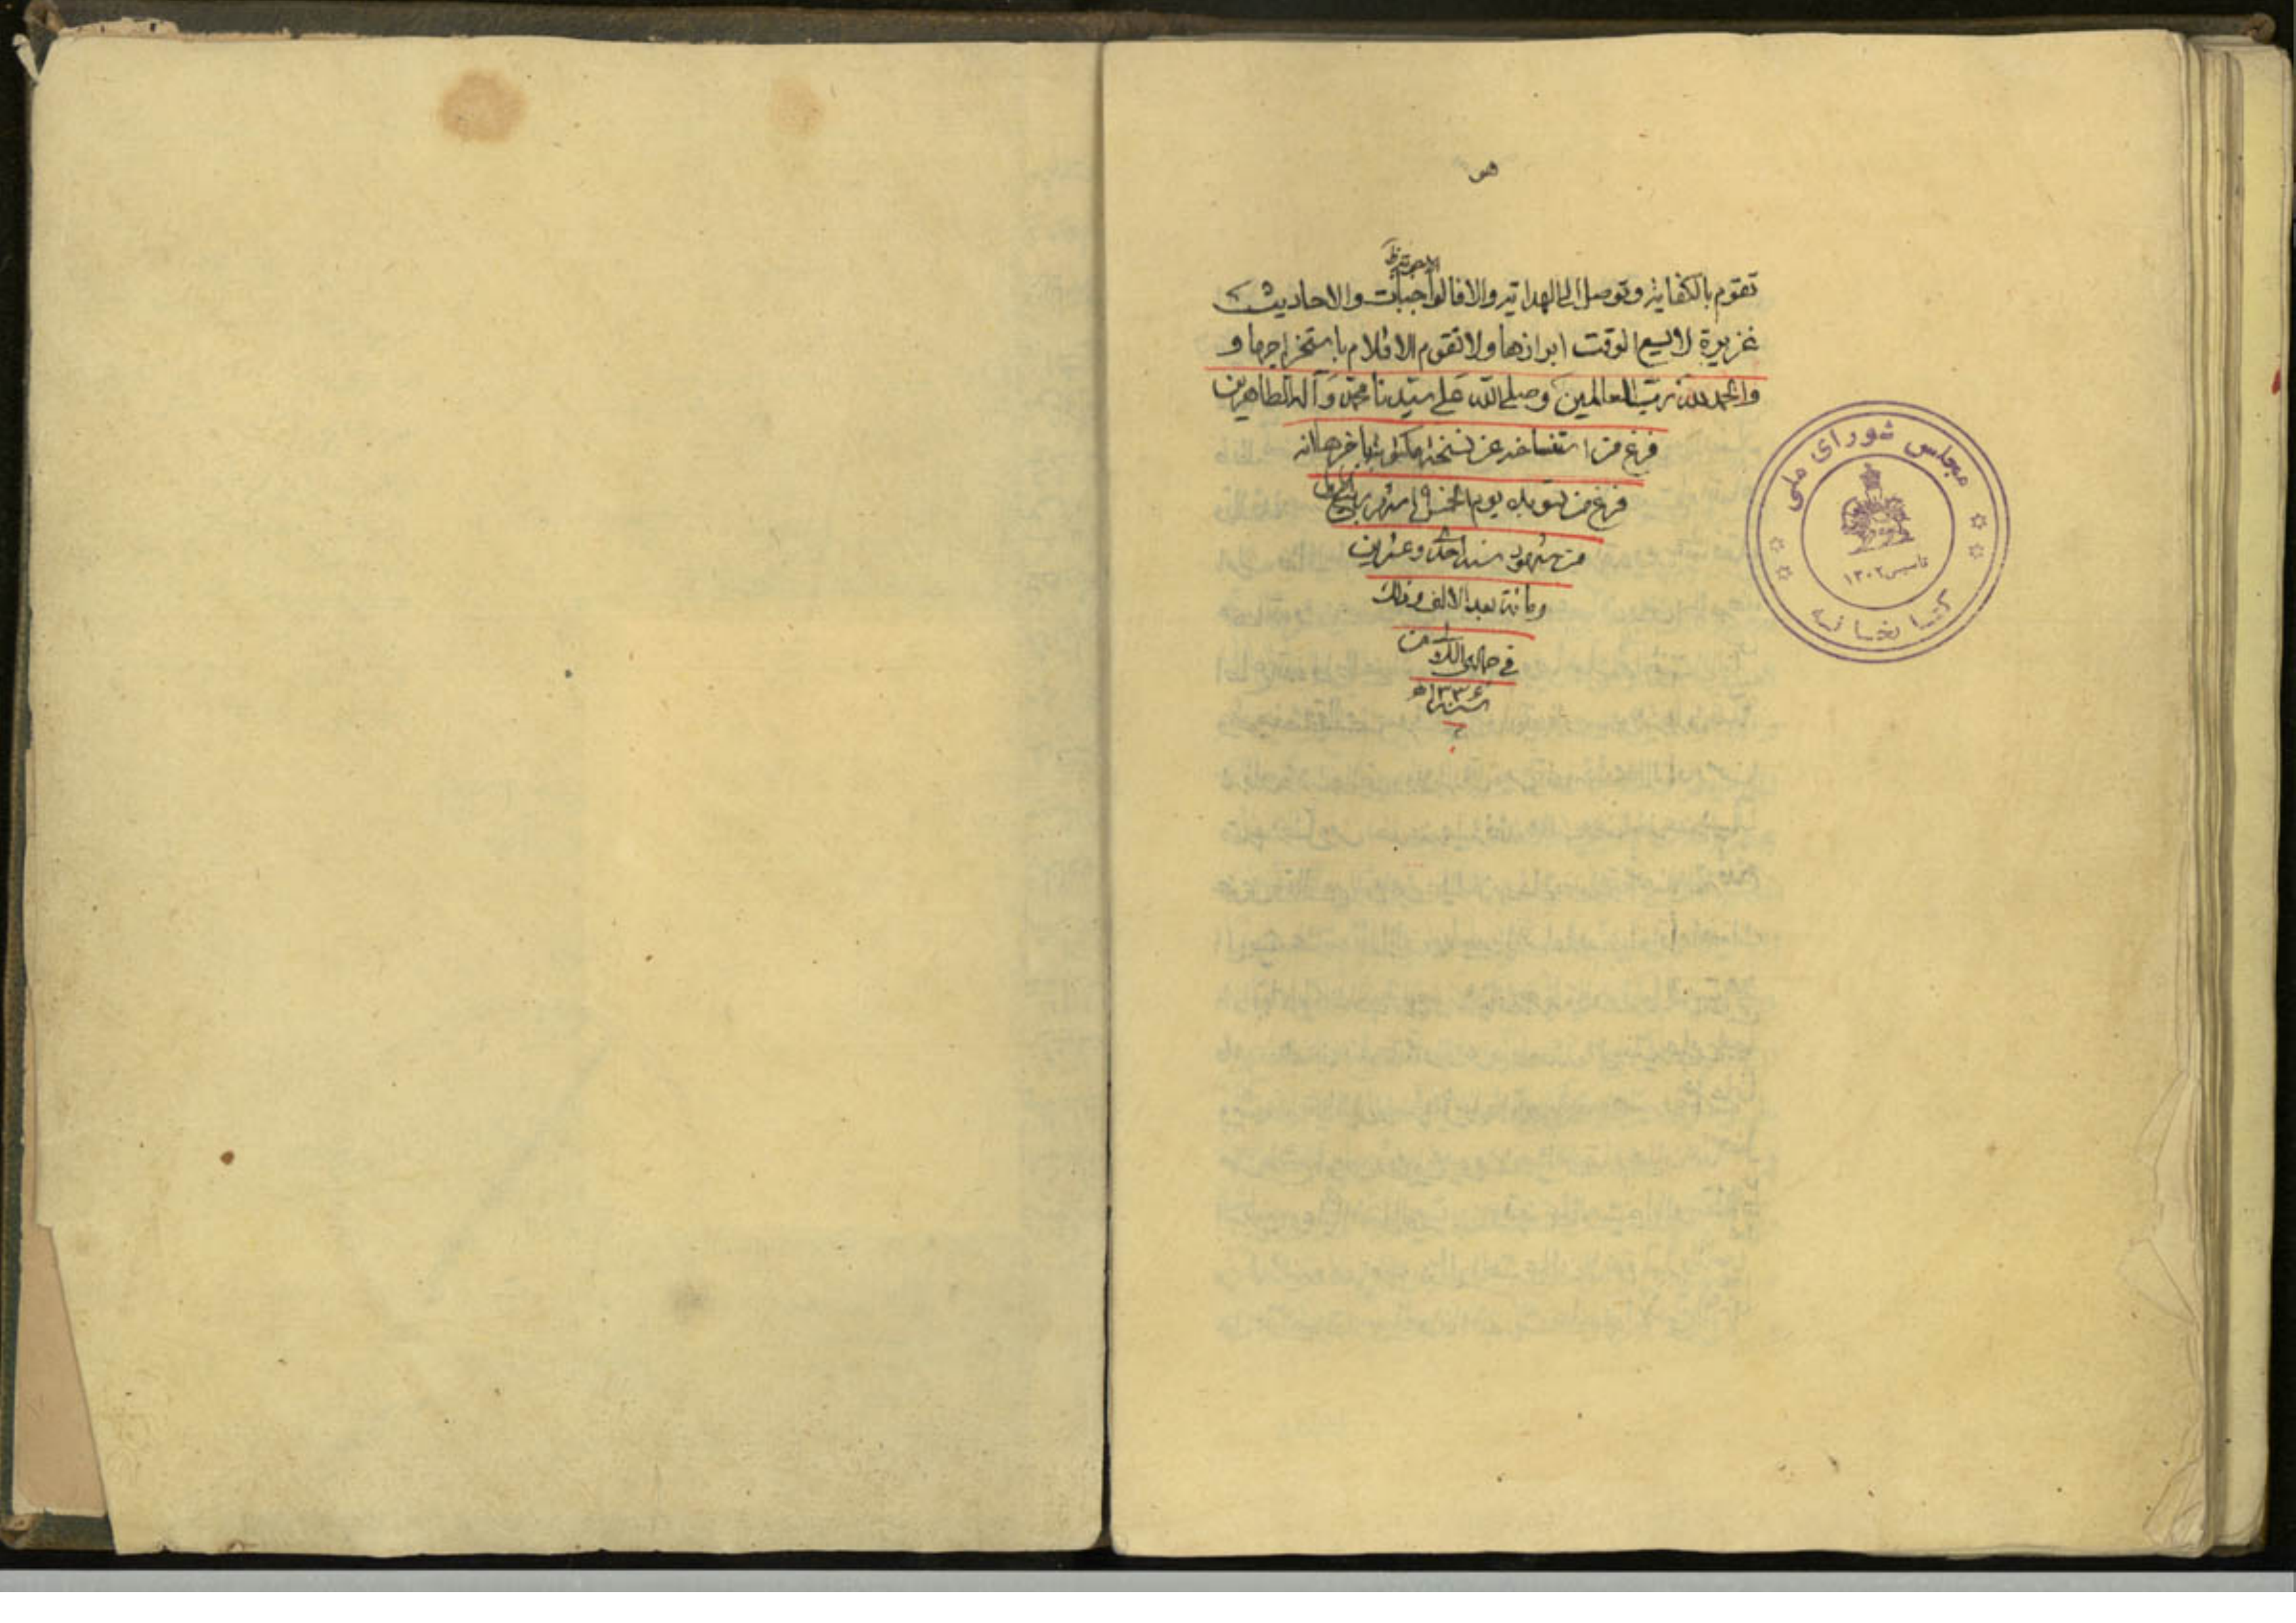 هو
تقوم بالكفاية وتوصل الى الهداية والا فالواجبات والاحاديث
غزيرة لا يسع الوقت ابرازها ولا تقوم الاقلام باستخراجها و
والحمد لله رب العالمين وصلى الله على سيدنا محمد وآله الطاهرين
فرغ من استنساخه عن نسخة مكتوب باخرها انه
فرغ من تسويده يوم الخميس شهر ربيع الاول
من شهور سنة احدى وعشرين
ومائة بعد الالف وذلك
في جمادى الثاني من
سنة ١٣٣٤ه
مجلس شورای ملی
تأسیس ١٣٠٢
کتابخانه